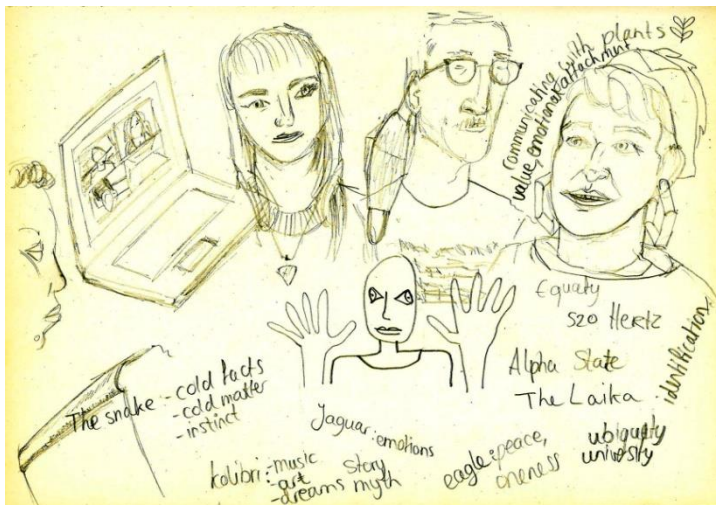 communicating with plants
value emotional attachment
Equaty
520 Hertz
Alpha State
The Laika
identification
The snake - cold facts
- cold matter
- instinct
Jaguar: emotions
kolibri: - music
- art story
- dreams myth
eagle: peace,
oneness
ubiquaty
university